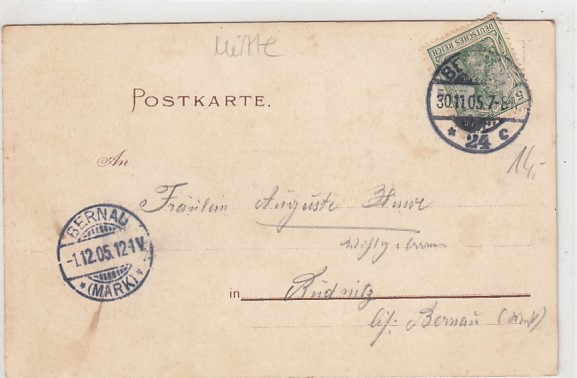 Mitte
DEUTSCHES REICH
5
BE
30.11.05.7-8
* 24 c
POSTKARTE.
14,-
An
Fräulein Auguste
Wohlgeboren
BERNAU
-1.12.05.12-1V.
*(MARK)*
in Rüdnitz
bei Bernau (Mark)